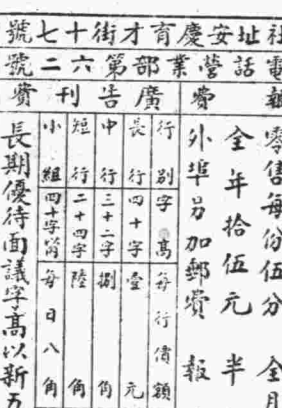 社址安慶育才街十七號
電話營業部第六二號
報費
零售每份伍分 全月
全年拾伍元 半
外埠另加郵費 報
廣告刊費
行別 字高 每行價額
長行 四十字 壹元
中行 三十二字 捌角
短行 二十四字 陸角
小組 四十字 每日八角
長期優待面議字高以新五